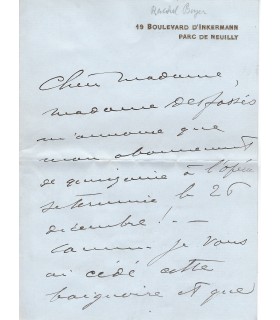 Maréchal Boyer
19 BOULEVARD D'INKERMANN
PARC DE NEUILLY
Chère Madame,
Madame Desfossés
m'annonce que
mon abonnement
de quinzaine à l'opéra
se termine le 26
décembre! -
Comme je vous
ai cédé cette
baignoire et que